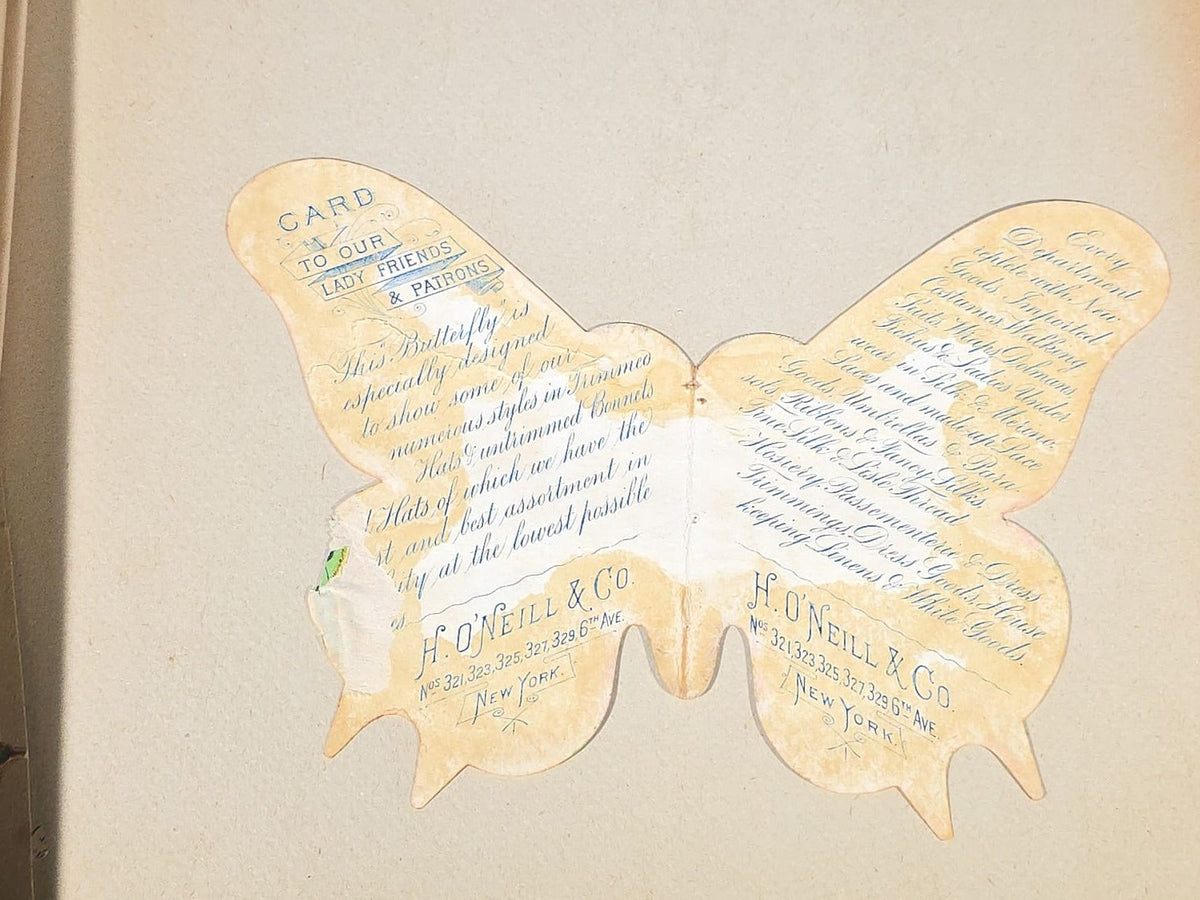 CARD
TO OUR
LADY FRIENDS
& PATRONS
This "Butterfly" is
especially designed
to show some of our
numerous styles in Trimmed
Hats & untrimmed Bonnets
! Hats, of which we have the
st and best assortment in
ity at the lowest possible
es.
H. O'NEILL & CO.
Nos 321, 323, 325, 327, 329, 6TH AVE.
NEW YORK.
Every
Department
replete with New
Goods Imported
Costumes, Walking
Suits, Wraps, Dolmans
Fichus & Ladies Under
wear in Silk & Merino
Laces and made up Lace
Goods, Umbrellas & Para
sols, Ribbons & Fancy Silks
Fine Silk & Lisle Thread
Hosiery, Passementerie & Dress
Trimmings, Dress Goods, House
keeping Linens & White Goods.
H. O'NEILL & CO.
Nos 321, 323, 325, 327, 329 6TH AVE.
NEW YORK.